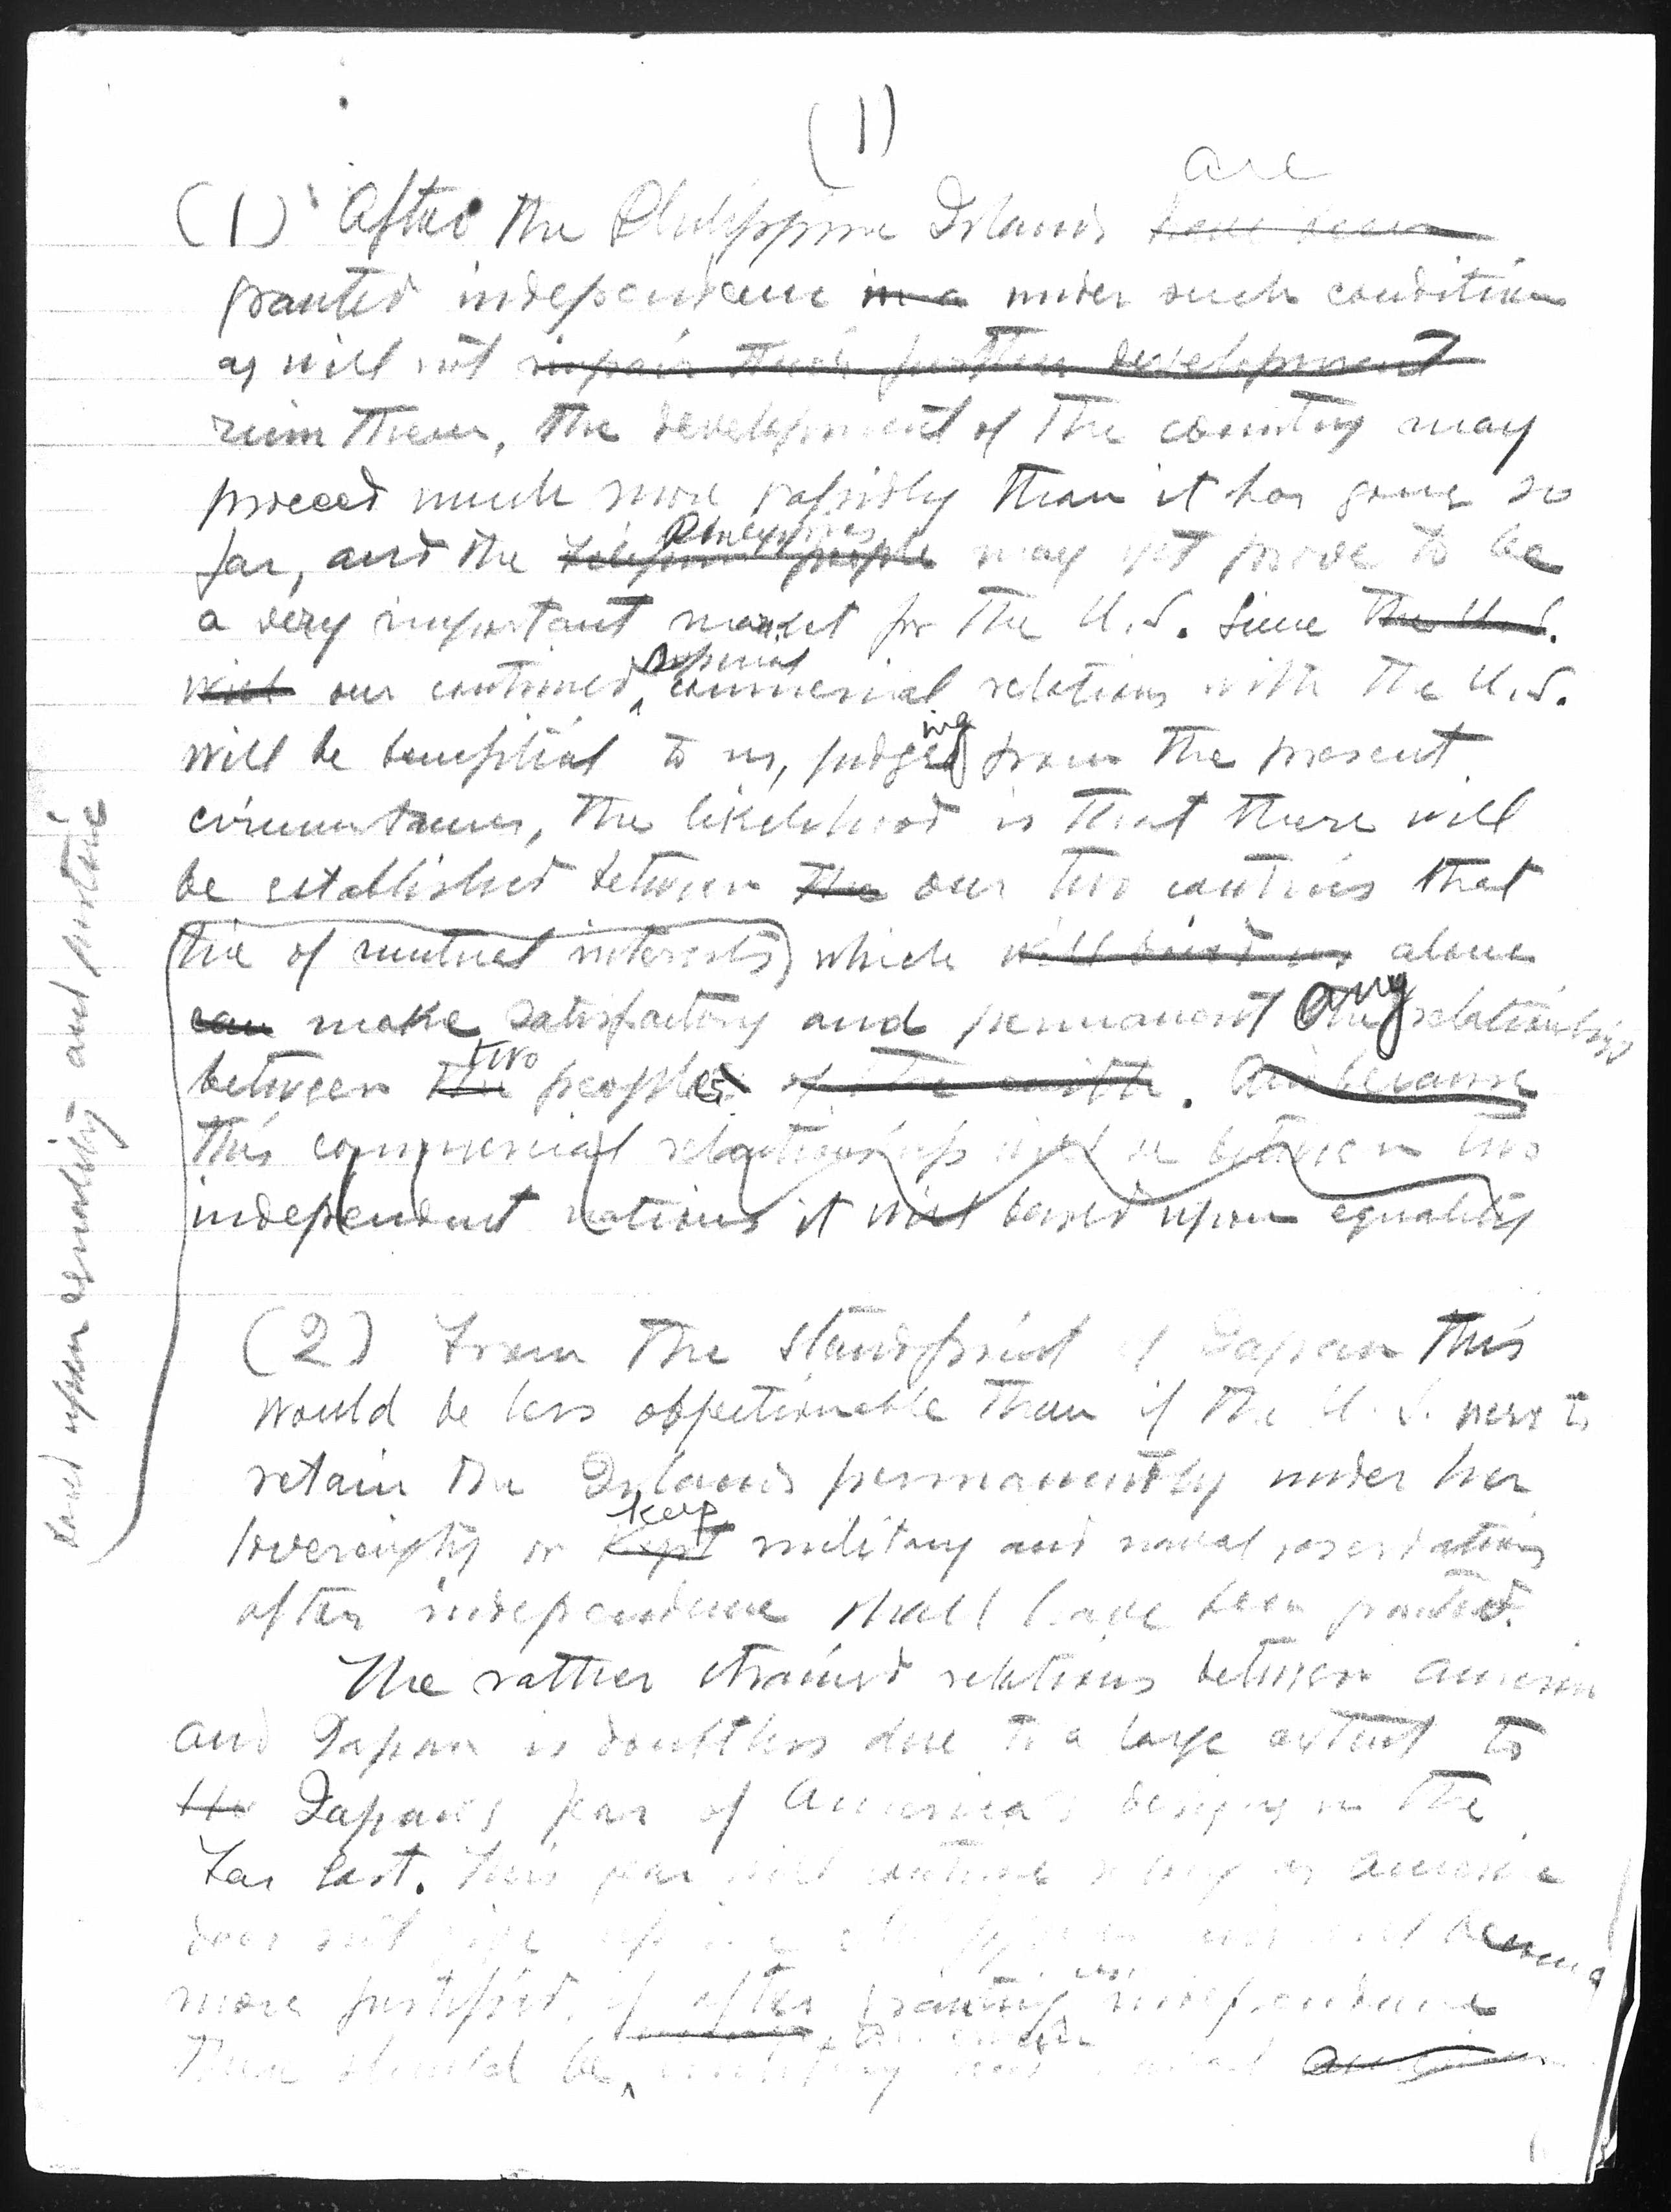 (1)
are
(1) After the Philippine Islands have been
granted independence in a under such conditions
as will not impair their further development
ruin them, the development of the country may
proceed much more rapidly than it has gone so
far, and the Filipino people Philippines may yet prove to be
a very important market for the U.S. Since the U.S.
will our continued special commercial relations with the U.S.
will be beneficial to us, judging from the present
circumstances, the likelihood is that there will
be established between the our two countries that
tie of mutual interests, which will bind us alone
can make satisfactory and permanent any relationship
between the two peoples of the earth. And because
this commercial relationship will be between two
independent nations it will based upon equality
based upon equality and justice
(2) From the standpoint of Japan this
would be less objectionable than if the U.S. were to
retain the Islands permanently under her
sovereignty or kept keep military and naval reservations
after independence shall have been granted.
The rather strained relations between America
and Japan is doubtless due to a large extent to
the Japan's fear of America's designs in the
Far East. This fear will continue so long as America
does not give up and will become
more justified, if after granting us independence
there should be military and naval